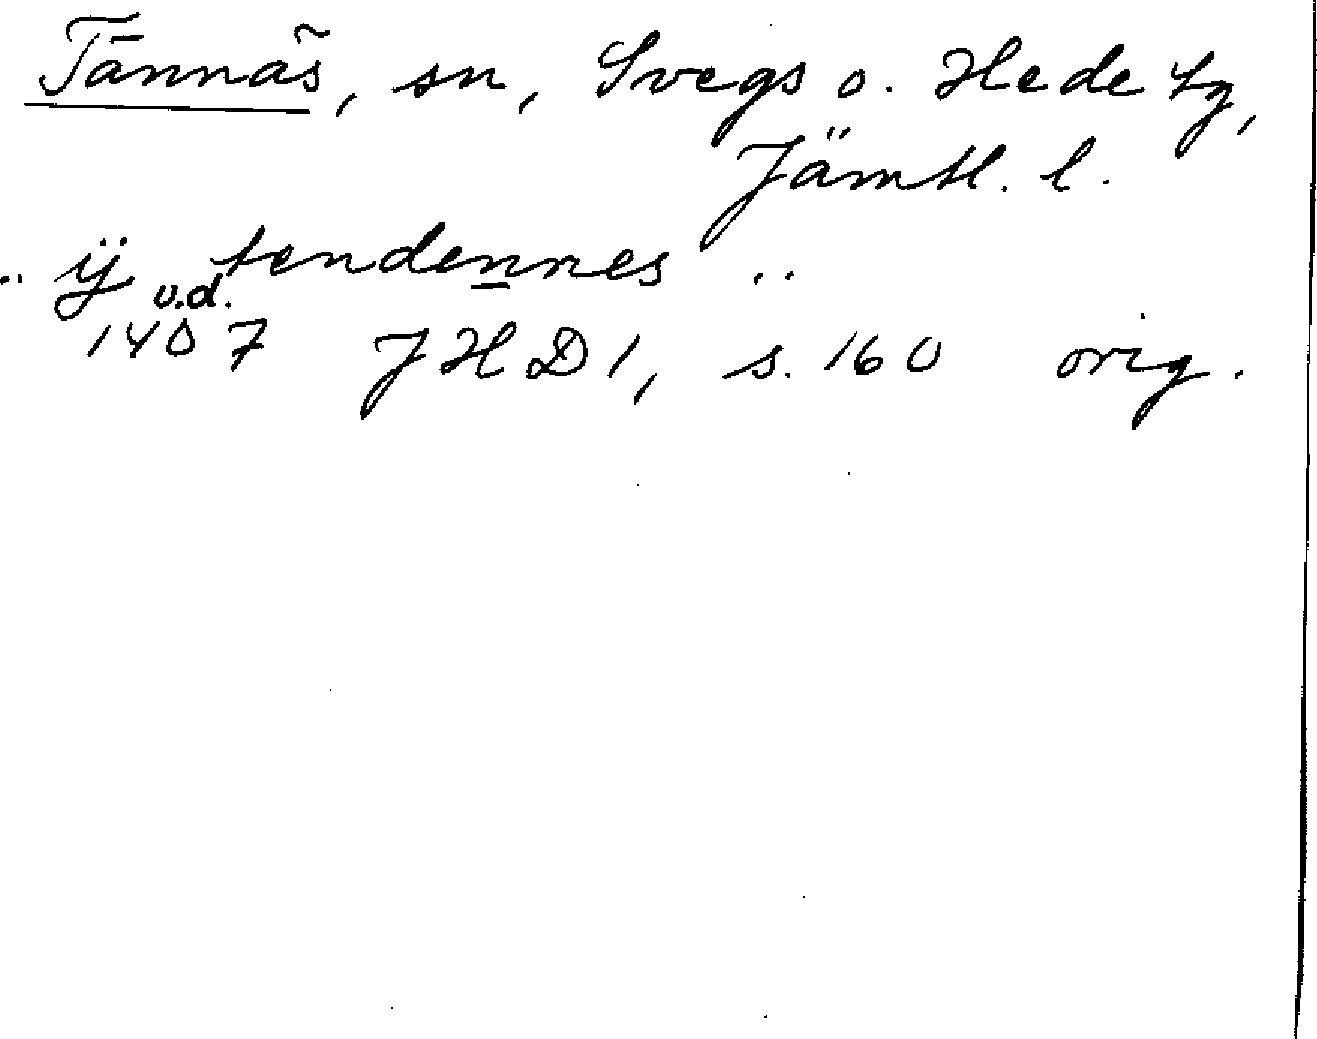 Tännäs, sn, Svegs o. Hede tg,
Jämtl. l.
.. ÿ tendennes ..
u.d.
1407 JHD 1, s. 160 orig.